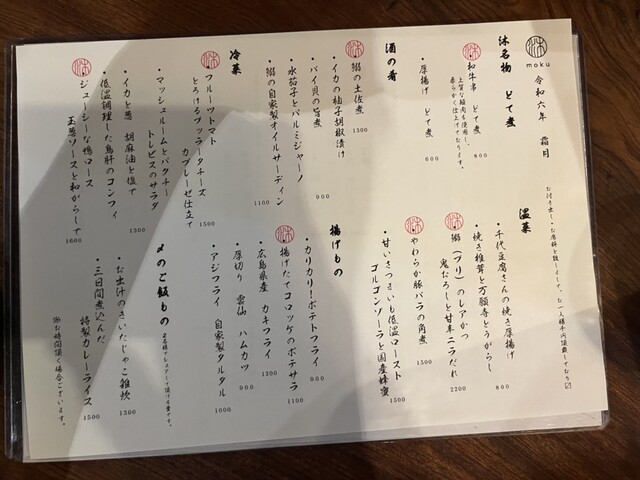 moku
令和六年 霜月
お付き出し・お席料と致しまして、お一人様千円頂戴しております
沐名物 どて煮
和牛串 どて煮 800
厚揚げ どて煮 600
酒の肴
鰯の土佐煮 1300
・イカの柚子胡椒漬け
・バイ貝の旨煮 900
・水茄子とパルミジャーノ
・鰯の自家製オイルサーディン 1100
冷菜
フルーツトマト
とろけるブッラータチーズ
カプレーゼ仕立て 1500
・マッシュルームとパクチー
トレビスのサラダ 1300
・イカと葱 胡麻油と塩で
・低温調理した鳥肝のコンフィ
ジューシーな鴨ロース
玉葱ソースと和がらしで 1600
温菜
・千代豆腐さんの焼き厚揚げ 800
・焼き椎茸と万願寺とうがらし
・鰤(ブリ)のレアかつ
鬼おろしと甘辛ニラだれ 2200
やわらか豚バラの角煮 1500
・甘いさつまいも低温ロースト
ゴルゴンゾーラと国産蜂蜜 1500
揚げもの
・カリカリ!ポテトフライ 900
揚げたてコロッケのポテサラ 1100
広島県産 カキフライ 1300
・厚切り 雲仙 ハムカツ 900
・アジフライ 自家製タルタル 1000
〆のご飯もの
・お出汁のきいたじゃこ雑炊 1300
・三日間煮込んだ
特製カレーライス 1500
※お時間頂く場合ございます。